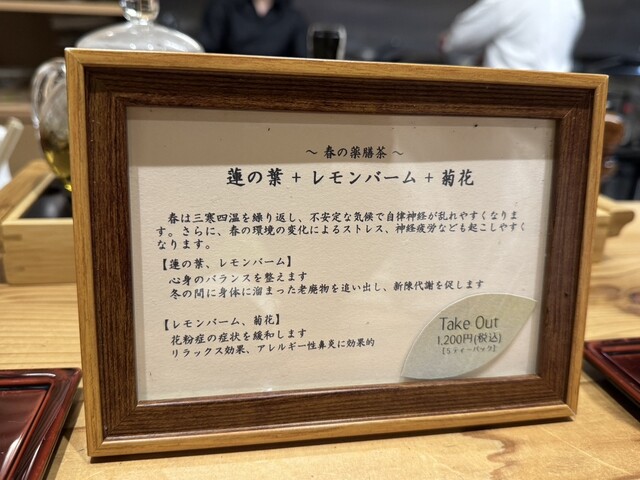 ～ 春の薬膳茶 ～
蓮の葉 + レモンバーム + 菊花
春は三寒四温を繰り返し、不安定な気候で自律神経が乱れやすくなりま
す。さらに、春の環境の変化によるストレス、神経疲労なども起こしやすく
なります。
【蓮の葉、レモンバーム】
心身のバランスを整えます
冬の間に身体に溜まった老廃物を追い出し、新陳代謝を促します
【レモンバーム、菊花】
花粉症の症状を緩和します
リラックス効果、アレルギー性鼻炎に効果的
Take Out
1,200円(税込)
【5ティーパック】